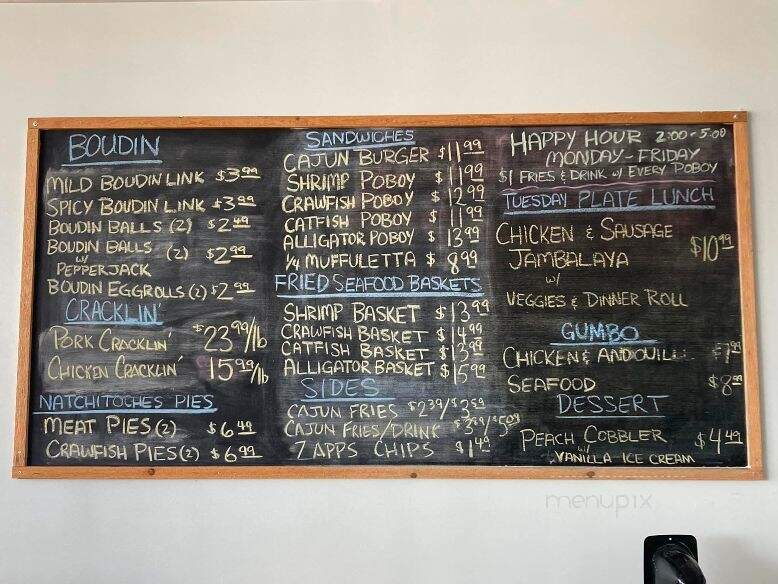 BOUDIN
MILD BOUDIN LINK $3.99
SPICY BOUDIN LINK $3.99
BOUDIN BALLS (2) $2.49
BOUDIN BALLS (2) $2.99
w/
PEPPERJACK
BOUDIN EGGROLLS (2) $2.99
CRACKLIN'
PORK CRACKLIN' $23.99/lb
CHICKEN CRACKLIN' 15.99/lb
NATCHITOCHES PIES
MEAT PIES (2) $6.49
CRAWFISH PIES (2) $6.99
SANDWICHES
CAJUN BURGER $11.99
SHRIMP POBOY $11.99
CRAWFISH POBOY $12.99
CATFISH POBOY $11.99
ALLIGATOR POBOY $13.99
1/4 MUFFULETTA $8.99
FRIED SEAFOOD BASKETS
SHRIMP BASKET $13.99
CRAWFISH BASKET $14.99
CATFISH BASKET $13.99
ALLIGATOR BASKET $15.99
SIDES
CAJUN FRIES $2.39/$3.59
CAJUN FRIES/DRINK $3.99/$5.09
ZAPPS CHIPS $1.49
HAPPY HOUR 2:00-5:00
MONDAY-FRIDAY
$1 FRIES & DRINK w/ EVERY POBOY
TUESDAY PLATE LUNCH
CHICKEN & SAUSAGE
JAMBALAYA $10.99
w/
VEGGIES & DINNER ROLL
GUMBO
CHICKEN & $7.99
SEAFOOD
DESSERT
PEACH COBBLER $4.49
w/
VANILLA ICE CREAM
menupix